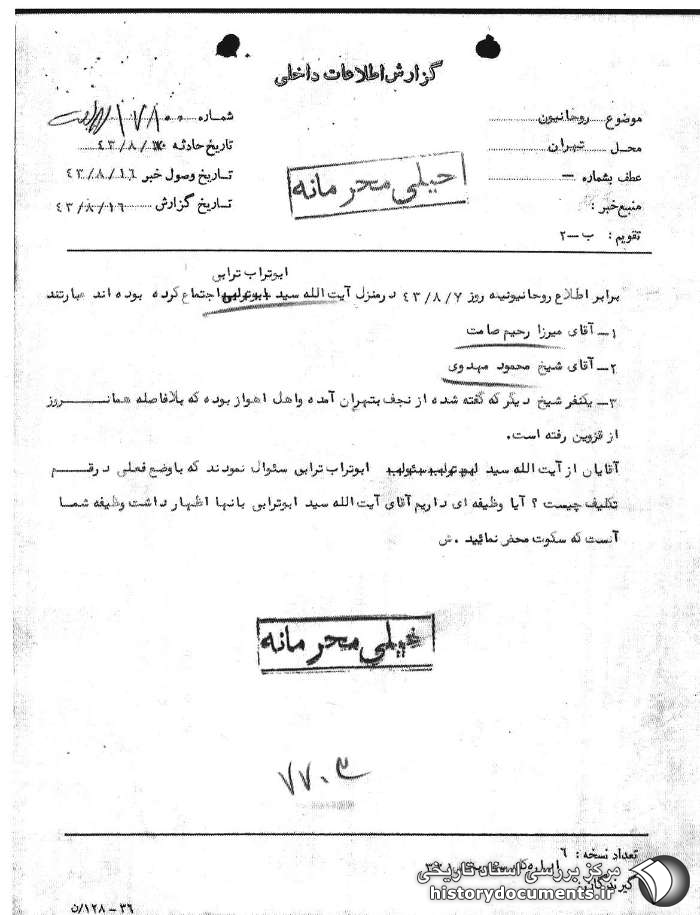 گزارش اطلاعات داخلی
موضوع روحانیون
محل تهران
عطف بشماره —
منبع خبر:
تقویم: ب—۲
شماره ۱۷۸۰۰
تاریخ حادثه ۴۳/۸/
تاریخ وصول خبر ۴۳/۸/۱۶
تاریخ گزارش ۴۳/۸/۱۶
خیلی محرمانه
ابوتراب ترابی
برابر اطلاع روحانیونیکه روز ۴۳/۸/۷ درمنزل آیت الله سید اجتماع کرده بوده اند عبارتند
۱— آقای میرزا رحیم صامت
۲— آقای شیخ محمود مهدوی
۳— یکنفر شیخ دیگر که گفته شده از نجف بتهران آمده واهل اهواز بوده که بلافاصله همانروز
از قزوین رفته است.
آقایان از آیت الله سید ابوتراب ترابی سئوال نمودند که باوضع فعلی درقم
تکلیف چیست ؟ آیا وظیفه ای داریم آقای آیت الله سید ابوترابی بانها اظهار داشت وظیفه شما
آنست که سکوت محض نمائید .ش
خیلی محرمانه
۷۷۰۳
تعداد نسخه : ۶
گیرندگان:
مرکز بررسی اسناد تاریخی
historydocuments.ir
۳۶ — ۱۲۸/ن